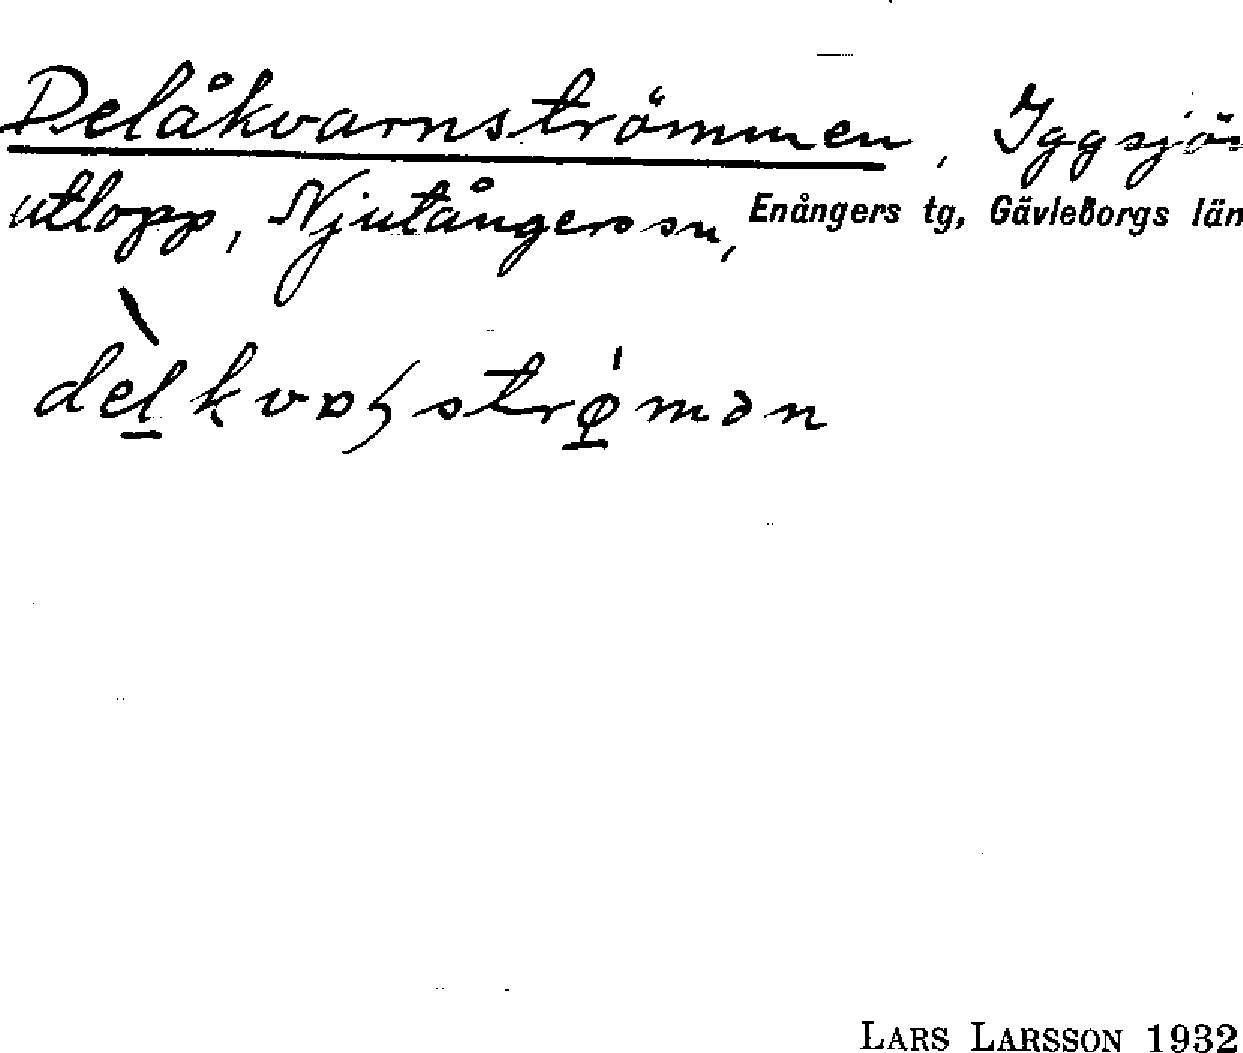 Delåkvarnströmmen, Iggsjös
utlopp, Njutångers sn, Enångers tg, Gävleborgs län
LARS LARSSON 1932